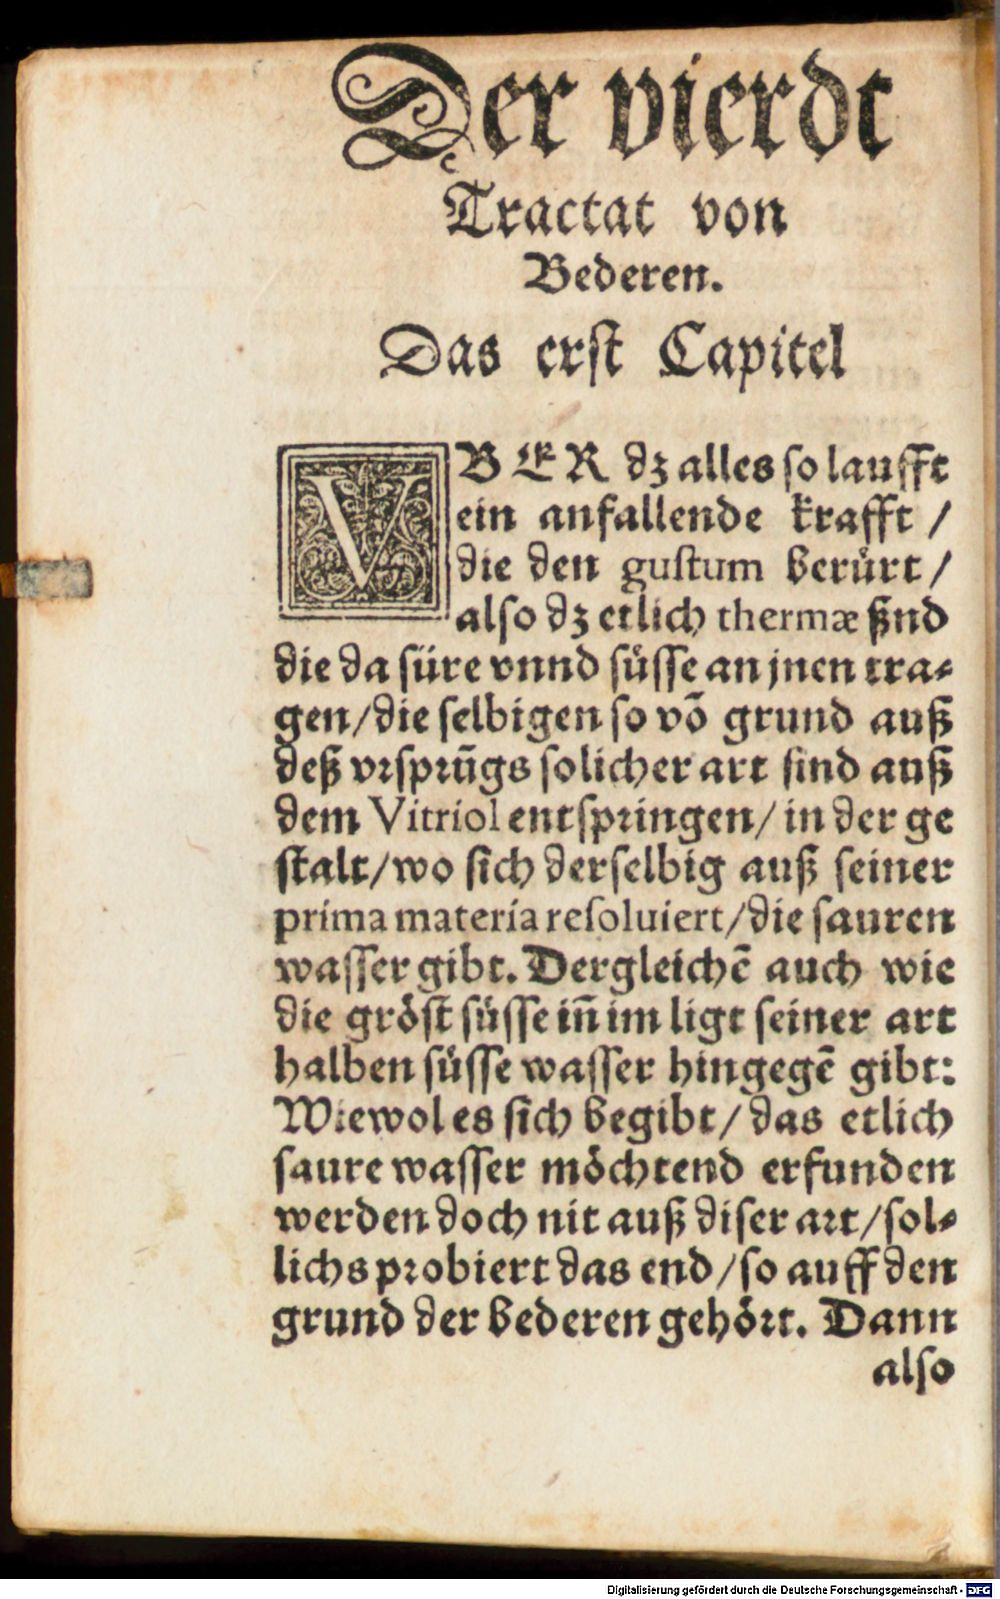 Der vierdt
Tractat von
Bederen.
Das erst Capitel
VBER dz alles so laufft
ein anfallende krafft /
die den gustum berürt /
also dz etlich thermæ sind
die da süre vnnd süsse an jnen tra⸗
gen / die selbigen so vō grund auß
deß vrsprūgs solicher art sind auß
dem Vitriol entspringen / in der ge
stalt / wo sich derselbig auß seiner
prima materia resoluiert / die sauren
wasser gibt. Dergleichē auch wie
die gröst süsse iñ im ligt seiner art
halben süsse wasser hingegē gibt:
Wiewol es sich begibt / das etlich
saure wasser möchtend erfunden
werden doch nit auß diser art / sol⸗
lichs probiert das end / so auff den
grund der bederen gehört. Dann
also
Digitalisierung gefördert durch die Deutsche Forschungsgemeinschaft - DFG